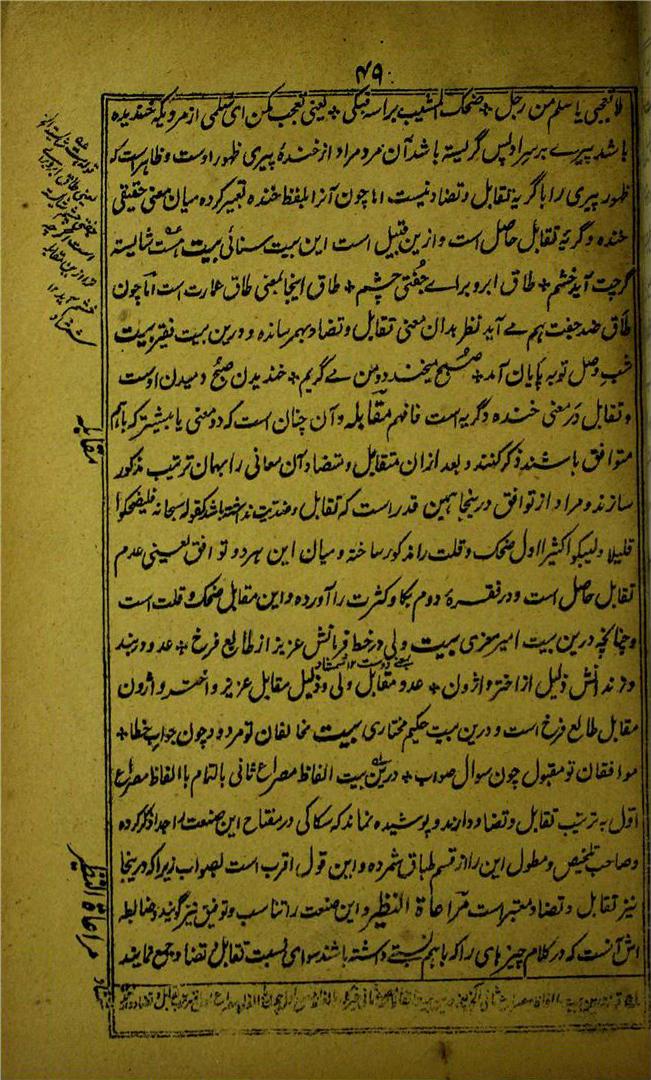 ۴۹
لا تعجبی یا سلم من رجل + ضحک المشیب براسه فبکی + یعنی تعجب مکن ای سلمی از مردیکه خندیده
باشد پیرے بر سر او پس گریسته باشد آن مرد مراد از خندهٔ پیری ظهور اوست و ظاهرست که
ظهور پیری را با گریه تقابل و تضاد نیست اما چون آنرا بلفظ خنده تعبیر کرده میان معنی حقیقی
خنده و گریه تقابل حاصل است و ازین قبیل است این بیت سنائی بیت هست شایسته
گرچت آید خشم + طاق ابرو براے جفتی چشم + طاق اینجا بمعنی طاق عمارت است اما چون
طاق ضد جفت هم مے آید نظر بدان معنی تقابل و تضاد بهم رسانده و درین بیت فقیر بیت
شب وصل تو به پایان آمد + صبح میخندد و من مے گریم + خندیدن صبح دمیدن اوست
و تقابل در معنی خنده و گریه است فافهم مقابله و آن چنان است که دو معنی یا بیشتر که باهم
متوافق باشند ذکر کنند و بعد ازان متقابل و متضاد آن معانی را بهمان ترتیب مذکور
سازند و مراد از توافق درینجا همین قدر است که تقابل و ضدیت نداشته باشد کقوله سبحانه فلیضحکوا
قلیلا و لیبکوا کثیرا اول ضحک و قلت را مذکور ساخته و میان این هر دو توافق یعنی عدم
تقابل حاصل است و در فقرهٔ دوم بکا و کثرت را آورده و این مقابل ضحک و قلت است
و چنانچه درین بیت امیر معزی بیت ولی در خط فرمانش عزیز از طالع فرخ + عدو در بند
و زندانش ذلیل از اختر واژون + عدو مقابل ولی و ذلیل مقابل عزیز و اختر واژون
مقابل طالع فرخ است و درین بیت حکیم مختاری بیت مخالفان تو مردود چون جواب خطا +
موافقان تو مقبول چون سوال صواب + درین بیت الفاظ مصراع ثانی بالتمام با الفاظ مصراع
اول به ترتیب تقابل و تضاد دارند و پوشیده نماند که سکاکی در مفتاح این صنعت را جدا ذکر کرده
و صاحب تلخیص و مطول این را از قسم طباق شمرده و این قول اقرب است بصواب زیرا که درینجا
نیز تقابل و تضاد معتبر است مراعاة النظیر و این صنعت را تناسب و توفیق نیز گویند و ضابطه
اش آنست که در کلام چیزهای را که باهم نسبتے داشته باشند سوای نسبت تقابل و تضاد جمع نمایند
مقابله
مراعاة النظیر